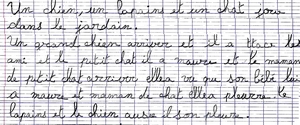 Un chien, un lapin et un chat joue
dans le jardain.
Un grand chien arriver et il a ttace les
ami et le petit chat il a maure et le maman
de petit chat arriver ellea vu que son bébé lui
a maure et maman di chat ellea pleurre le
lapine et le chien aussi il son pleure.